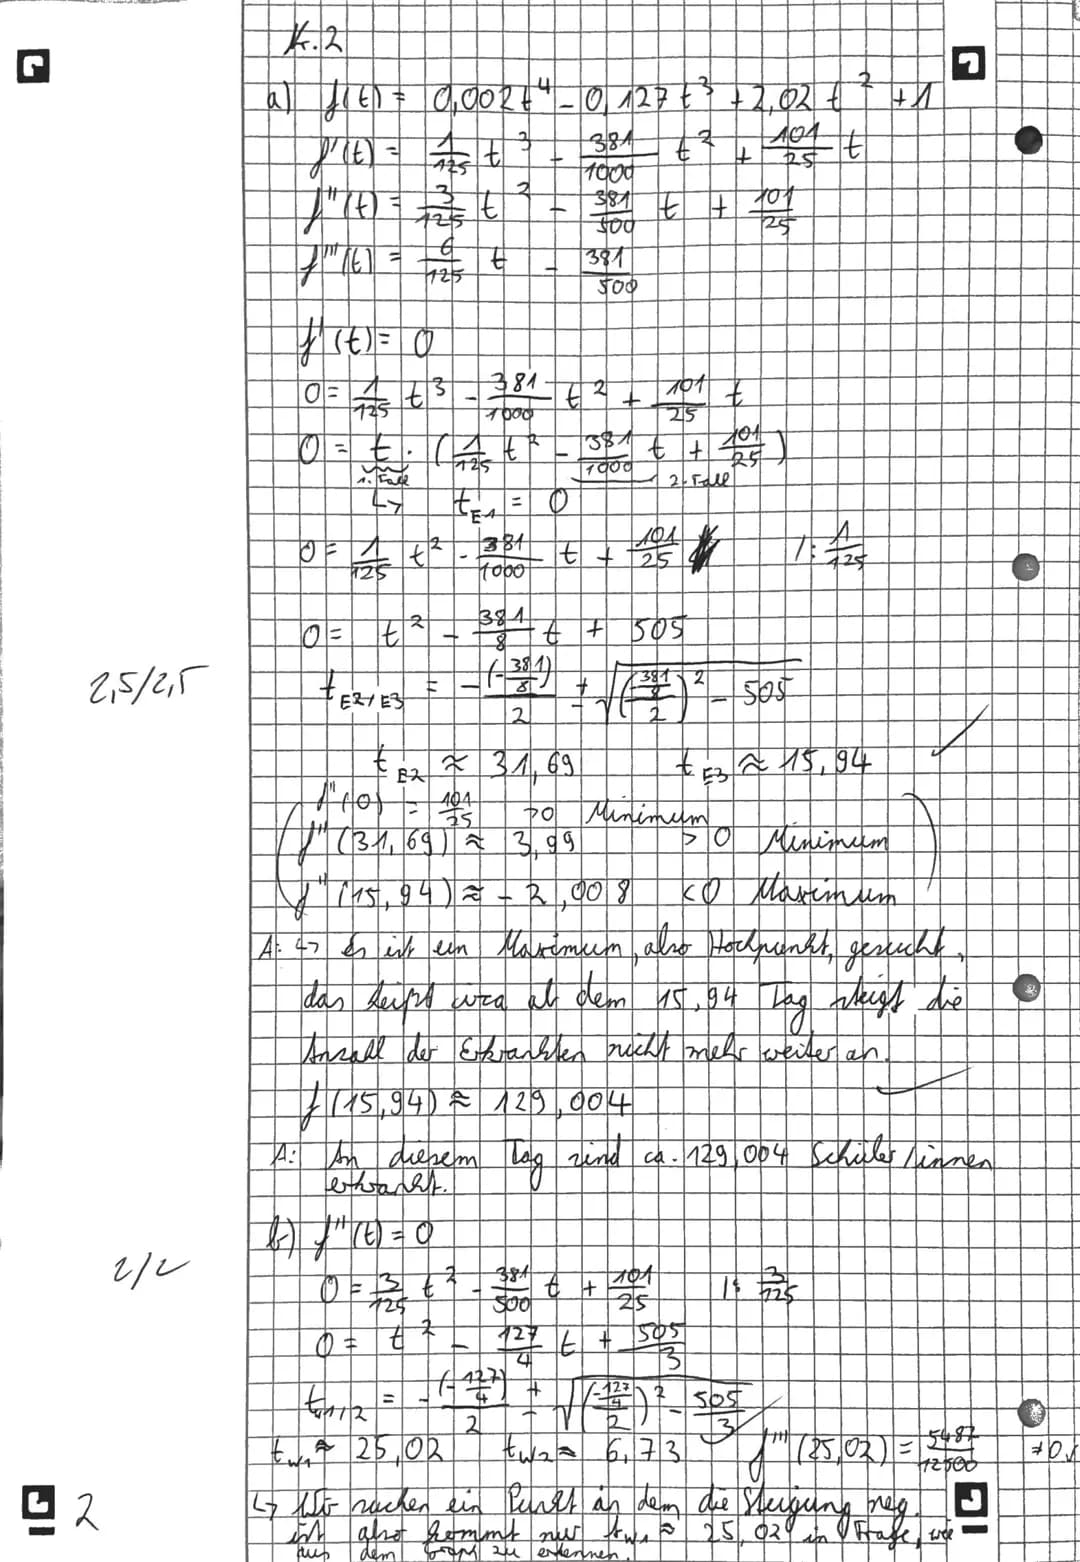 K.2
a) f(t) = 0,002t⁴ - 0,127t³ + 2,02t² + 1
f'(t) = 1/125 t³ - 381/1000 t² + 101/25 t
f''(t) = 3/125 t² - 381/500 t + 101/25
f'''(t) = 6/125 t - 381/500
f'(t) = 0
0 = 1/125 t³ - 381/1000 t² + 101/25 t
0 = t · (1/125 t² - 381/1000 t + 101/25)
1. Fall 2. Fall
↳ t_E1 = 0
0 = 1/125 t² - 381/1000 t + 101/25 |: 1/125
0 = t² - 381/8 t + 505
2,5/2,5
t_E2/E3 = - (-381/8)/2 ± √(((-381/8)/2)² - 505)
t_E2 ≈ 31,69 t_E3 ≈ 15,94 ✓
(f''(0) = 101/25 >0 Minimum
f''(31,69) ≈ 3,99 > 0 Minimum
f''(15,94) ≈ -2,008 <0 Maximum)
A: ↳ Es ist ein Maximum, also Hochpunkt, gesucht,
das heißt circa ab dem 15,94 Tag steigt die
Anzahl der Erkrankten nicht mehr weiter an.
f(15,94) ≈ 129,004 ✓
A: An diesem Tag sind ca. 129,004 Schüler/innen
erkrankt.
b) f''(t) = 0
2/2
0 = 3/125 t² - 381/500 t + 101/25 |: 3/125
0 = t² - 127/4 t + 505/3
t_W1/2 = - (-127/4)/2 ± √(((-127/4)/2)² - 505/3)
t_W1 ≈ 25,02 t_W2 ≈ 6,73 ✓ f'''(25,02) = 5487/12500 ≠0
↳ Wir suchen ein Punkt an dem die Steigung neg.
ist also kommt nur t_W1 ≈ 25,02 in Frage, wie
aus dem Graph zu erkennen.
2